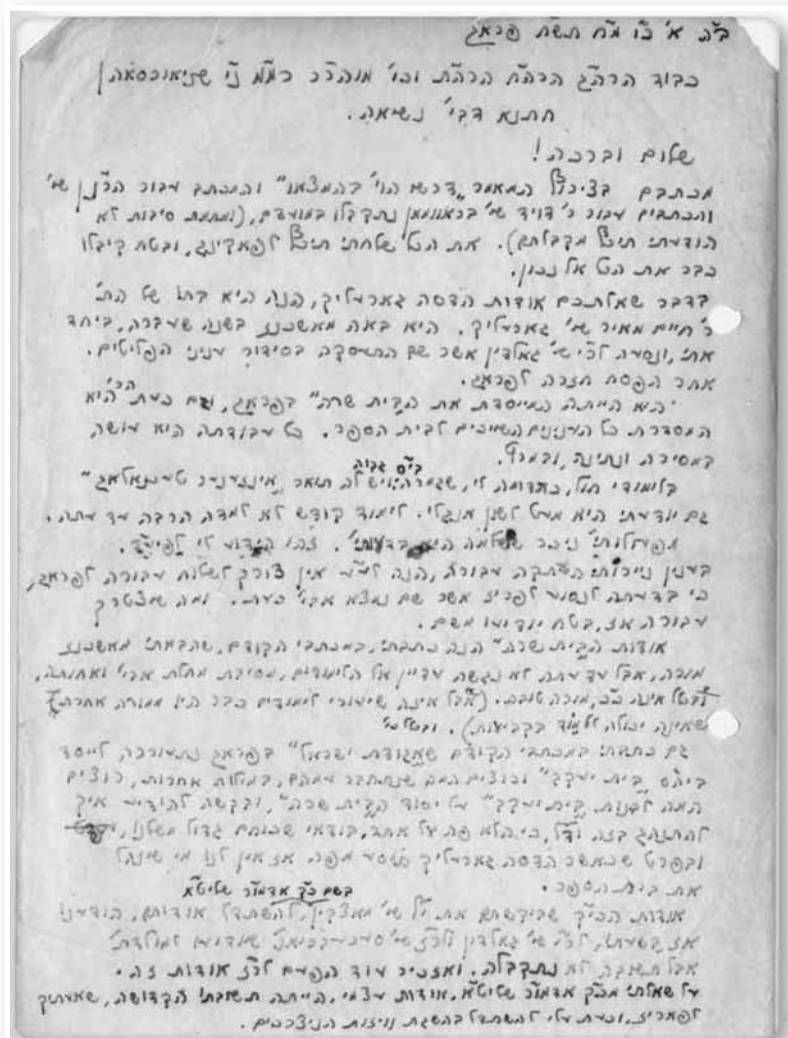 ב"ה א' כ"ו מ"ח תש"ח פראג
כבוד הרה"ג הרה"ח הרה"ת וכו' מוהר"ר רמ"מ נ"י שניאורסאהן
חתנא דבי' נשיאה.
שלום וברכה!
מכתבם בצירוף המאמר "דרשו הוי' בהמצאו" והמכתב עבור הר"נ"ן שי'
והכתבים עבור ר' דויד שי' בראוומאן נתקבלו במועדם, (ומחמת סיבות לא
הודעתי תיכף מקבלתם). את הנ"ל שלחתי תיכף לפאקינג, ובטח קיבלו
כבר את הנ"ל אל נכון.
בדבר שאלתכם אודות הדסה גארעליק, הנה היא בתו של הת'
ר' חיים מאיר שי' גארעליק. היא באה מאשכנז בשנה שעברה, ביחד
אתי, ונסעה לר"י שי' גאלדין אשר שם התעסקה בסידור עניני הפליטים.
אחר הפסח חזרה לפראג.
היא הייתה המייסדת את ה"בית שרה" בפראג, וגם כעת היא הר"י
המסדרת כל הענינים השייכים לבית הספר. כל עבודתה היא עושה
במסירה ונתינה, ובמרץ.
בלימודי חול, כמדומה לי, שגמרה בי"ס גבוה ויש לה תואר "אינזשענער טעכנאלאג"
גם יודעת היא מעט לשון אנגלי. לימוד קודש לא למדה הרבה עד עתה.
מפעולותי' ניכר ששלמה היא בדעותי'. זהו הידוע לי לפי"ע.
בענין ניירות העתקה עבורה, הנה לע"ע אין צורך לשלוח עבורה לפראג,
כי בדעתה לנסוע לפריז אשר שם נמצא אבי' כעת. ומה שיצטרך
עבורה אז, בטח יודיעו משם.
אודות ה"בית שרה" הנה כתבתי, במכתבי הקודם, שהבאתי מאשכנז
מורה, אבל עד עתה לא נגשה עדיין אל הלימודים, מסיבת מחלת אבי' ואחותה,
אינה כ"כ, מורה טובה. (אבל אינה שיעורי לימודים כבר היו ממורה אחרת
שאינה יכולה ללמוד בקביעות).
גם כתבתי במכתבי הקודם שאגודת ישראל" בפראג נתעוררה, לייסד
ביה"ס "בית יעקב" ורוצים המה שנתחבר עמהם, במלות אחרות, רוצים
המה לבנות "בית יעקב" על יסוד ה"בית שרה", ובקשה להודיע איך
להתנהג בזה וד"ל, כי הלא פה על אתר, בודאי שכוחם גדול משלנו,
ובפרט שכאשר הדסה גארעליק תיסע מפה אז אין לנו מי שינהל
את בית הספר.
אודות הכ"ק שביקשתם את י"ל שי' מאצקין, בשם כ"ק אדמו"ר שליט"א להשתדל אודותם, הודענו
אז בשעתו, לר"י שי' גאלדין ולר"ז שי' שיודיעו למולדתי
אבל תשובה לא נתקבלה. ואזכיר עוד הפעם לר"ז אודות זה.
על שאלתי מכ"ק אדמו"ר שליט"א, אודות עצמי, הייתה תשובתו הקדושה, שאעתיק
לפאריז, וכעת עלי להשתדל בהשגת וויזות הניצרכים.